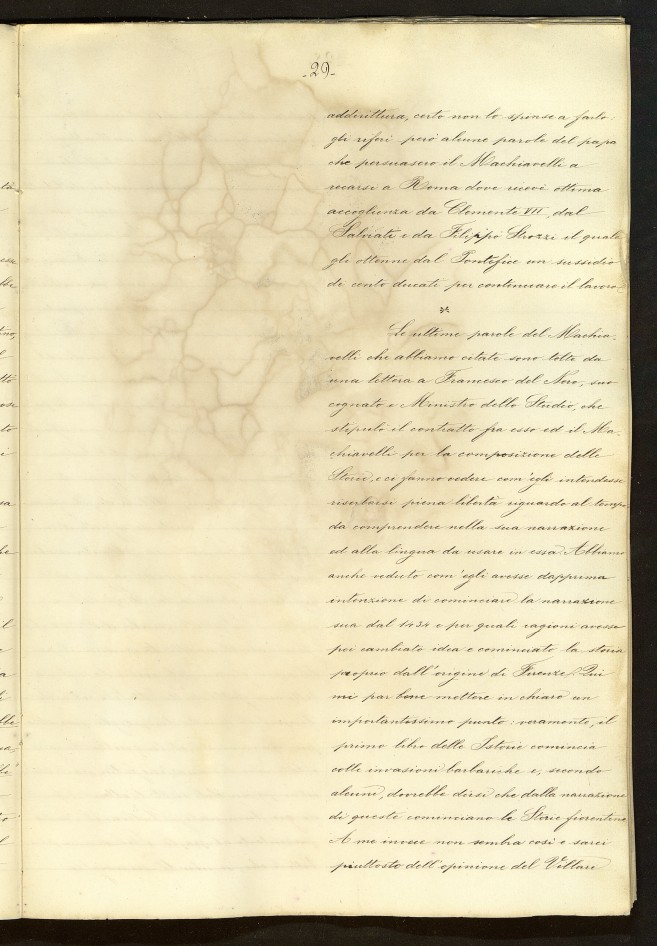 -29-
addirittura, certo non lo spinse a farlo:
gli riferì però alcune parole del papa
che persuasero il Machiavelli a
recarsi a Roma dove ricevè ottima
accoglienza da Clemente VII, dal
Salviati e da Filippo Strozzi il quale
gli ottenne dal Pontefice un sussidio
di cento ducati per continuare il lavoro.
Le ultime parole del Machia-
velli che abbiamo citate sono tolte da
una lettera a Francesco del Nero, suo
cognato e Ministro dello Studio, che
stipulò il contratto fra esso ed il Ma-
chiavelli per la composizione delle
Storie, e ci fanno vedere com'egli intendesse
riserbarsi piena libertà riguardo al tempo
da comprendere nella sua narrazione
ed alla lingua da usare in essa. Abbiamo
anche veduto com'egli avesse dapprima
intenzione di cominciare la narrazione
sua dal 1434 e per quali ragioni avesse
poi cambiato idea e cominciato la storia
proprio dall'origine di Firenze. Qui
mi par bene mettere in chiaro un
importantissimo punto: veramente, il
primo libro delle Istorie comincia
colle invasioni barbariche e, secondo
alcuni, dovrebbe dirsi che dalla narrazione
di queste cominciano le Storie fiorentine.
A me invece non sembra così e sarei
piuttosto dell'opinione del Villari